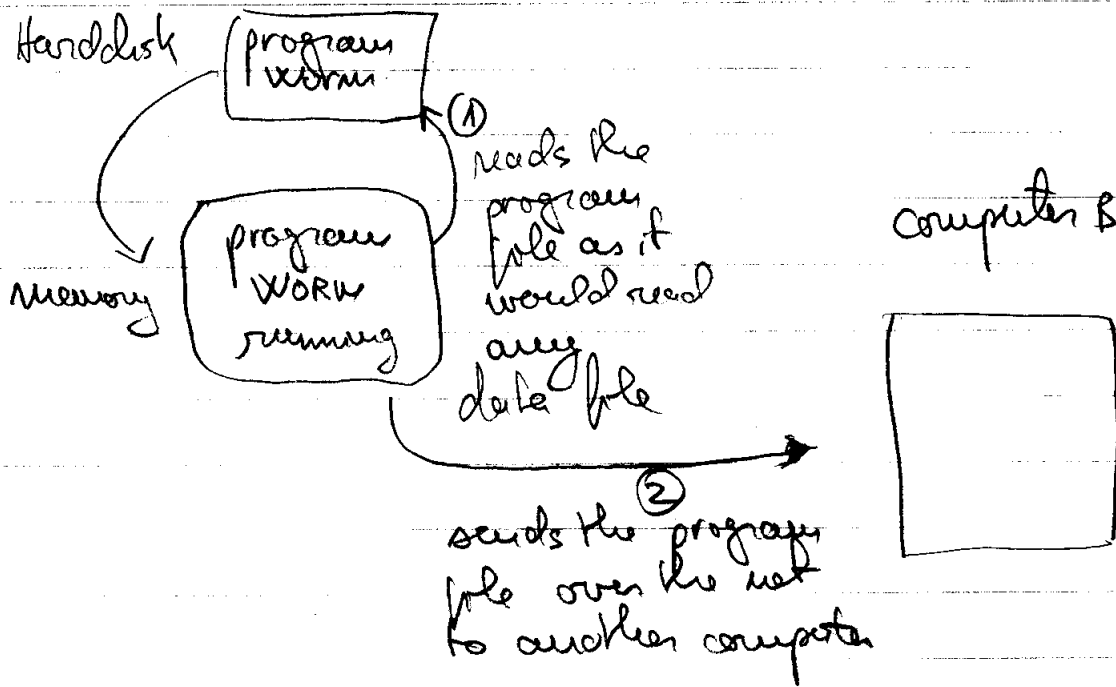 Harddisk
program
worm
①
reads the
program
file as it
would read
any
data file
memory
program
WORM
running
computer B
②
sends the program
file over the net
to another computer